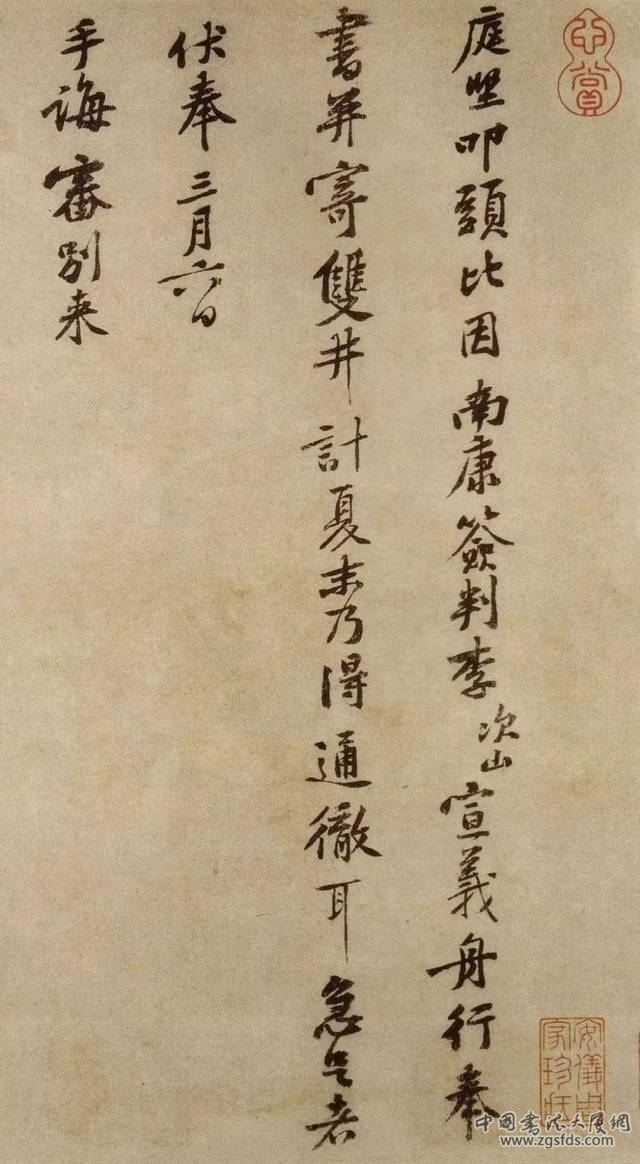 庭堅叩頭比因南康簽判李次山宣義舟行奉
書并寄雙井計夏末乃得通徹耳急足者
伏奉三月六日
手誨審別来
安儀周家珍藏
心賞
中国书法大厦網
www.zgsfds.com